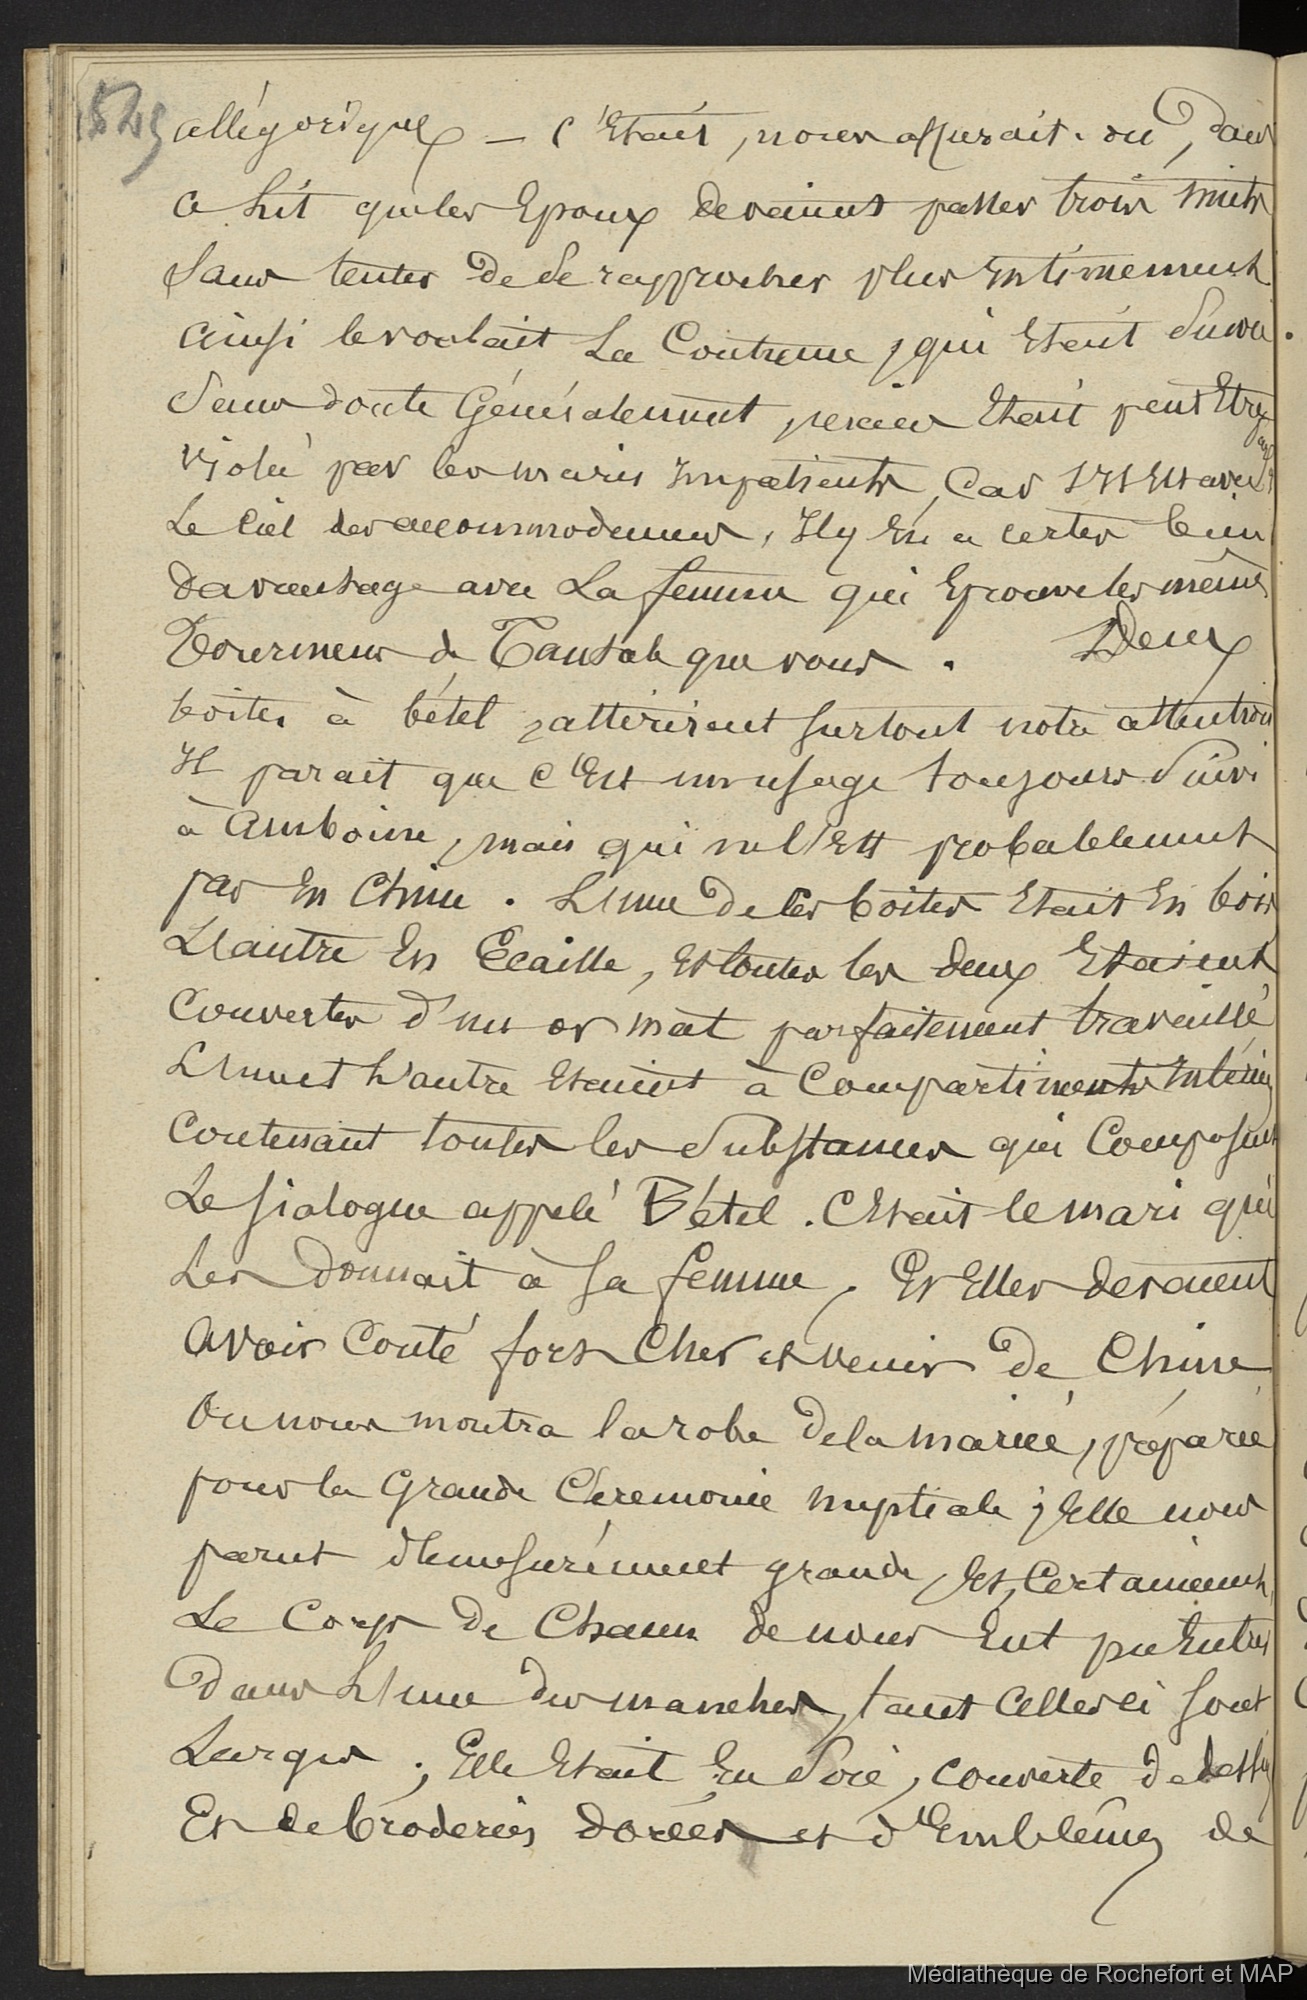 allégoriques – C'Etait, nous assurait-on, dans
ce lit que les Epoux devaient passer trois nuits
sans tenter de se rapprocher plus Intimement
ainsi le voulait La Coutume, qui Etait suivie.
sans doute Généralement, mais Etait peut Etre
violé par les maris Impatients, Car s'Il Est avec
Le Ciel des accommodemens, Il y En a certes bien
davantage avec La femme qui Eprouve les mêmes
Tourmens de Tantale que vous. Deux
boites à bétel, attirèrent surtout notre attention
Il parait que c'Est un usage toujours suivi
à amboine, mais qui ne l'Est probablement
pas En Chine. L'une de ces boites Etait En bois
L'autre En Ecaille, Et toutes les deux Etaient
Couvertes d'un or mat parfaitement travaillé
L'une et L'autre Etaient à Compartiments
Contenant toutes les substances qui Composent
Le sialogue appelé Bétel. C'Etait le mari qui
Les donnait à sa femme, Et Elles devaient
avoir Couté fort Cher et venir de Chine
On nous montra la robe de la mariée, préparée
pour la Grande Cérémonie nuptiale ; Elle nous
parut démesurément grande, Et, Certainement,
Le Corps de Chacun de nous Eut pu Entrer
dans L'une des manches, tant Celles ci sont
Larges ; Elle Etait En soie, couverte de dessins
Et de broderies dorées et d'Emblêmes de
Médiathèque de Rochefort et MAP